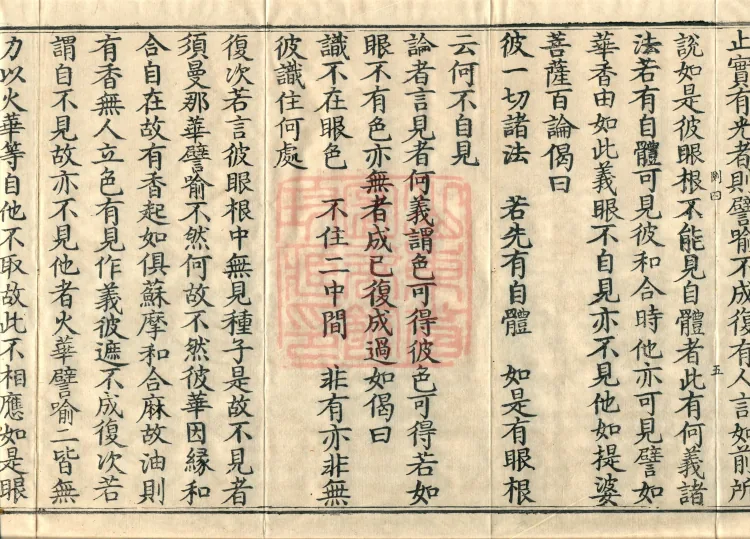 止實有光者則譬喻不成復有人言如前所
說如是彼眼根不能見自體者此有何義諸
法若有自體可見彼和合時他亦可見譬如
華香由如此義眼不自見亦不見他如提婆
菩薩百論偈曰
彼一切諸法　若先有自體　如是有眼根
云何不自見
論者言見者何義謂色可得彼色可得若如
眼不有色亦無者成已復成過如偈曰
識不在眼色　不住二中間　非有亦非無
彼識住何處
復次若言彼眼根中無見種子是故不見者
須曼那華譬喻不然何故不然彼華因緣和
合自在故有香起如俱蘇摩和合麻故油則
有香無人立色有見作義彼遮不成復次若
謂自不見故亦不見他者火華譬喻二皆無
力以火華等自他不取故此不相應如是眼
五